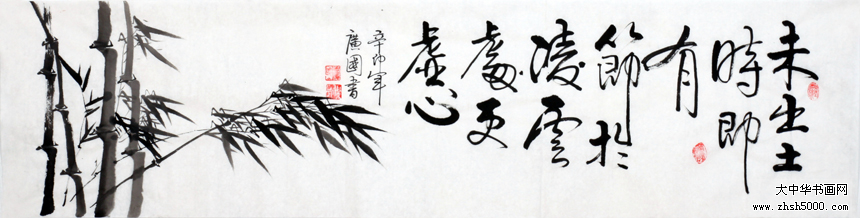 未出土
時即
有
節於
凌雲
處更
虛心
辛卯年
廣國書
大中华书画网
www.zhsh5000.com